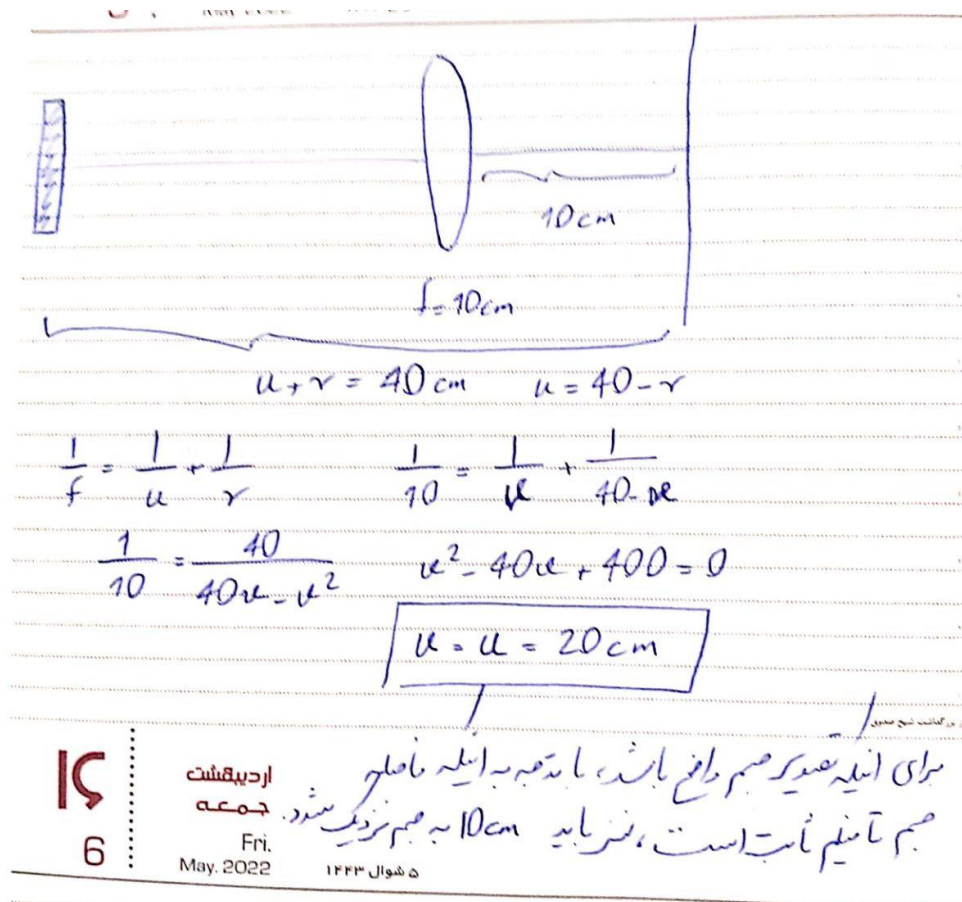 10 cm
f = 10 cm
u + v = 40 cm u = 40 - v
1/f = 1/u + 1/v 1/10 = 1/v + 1/40-v
1/10 = 40/40v - v² v² - 40v + 400 = 0
v = u = 20 cm
برای اینکه تصویر جسم واضح باشد، با توجه به اینکه فاصله
جسم تا فیلم ثابت است، لنز باید 10cm به جسم نزدیک شود.
۱۶
اردیبهشت
جمعه
6
Fri.
May. 2022
۵ شوال ۱۴۴۳